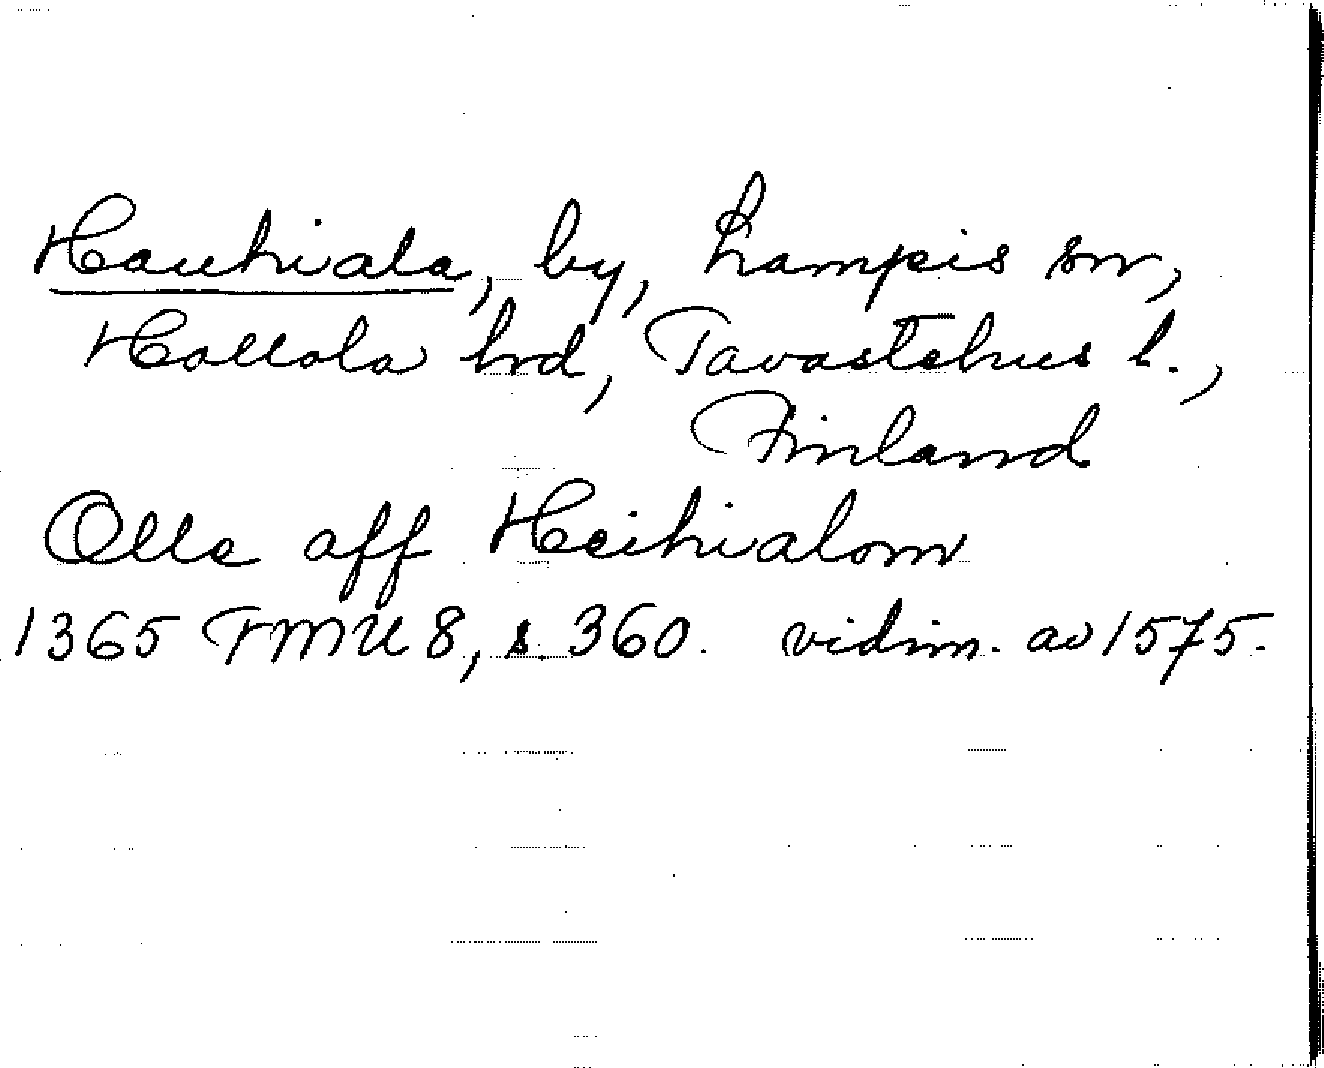 Hauhiala, by, Lampis sn,
Hollola hrd, Tavastehus l.,
Finland
Olle aff Heihialom
1365 FMU 8, s. 360. vidim. av 1575.